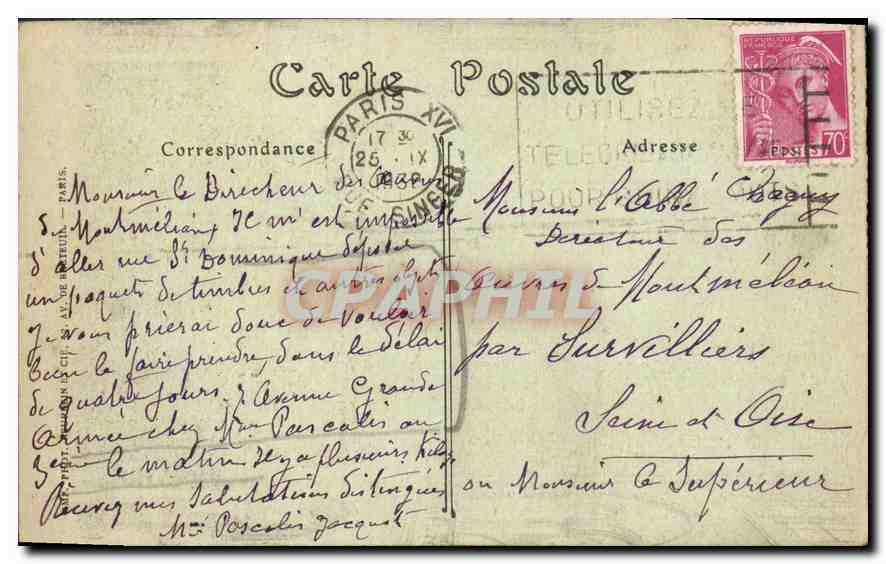 Carte Postale
Correspondance
Adresse
PARIS XVI
17 30
25 IX
RUE SINGER
UTILISEZ
REPUBLIQUE
FRANÇAISE
POSTES 70c
Monsieur le Directeur des Œuvres
de Montméliant Il m'est impossible
d'aller rue St Dominique déposer
un paquets de timbres et autres objets
Je vous prierai donc de vouloir
bien le faire prendre, dans le délai
de quatre jours. Avenue Grande
Armée chez Mme Pascalis au
3ème le matin Il y a plusieurs Kilog
Recevez mes Salutations distinguées
Mme Pascalis Jacquot
Monsieur l'Abbé
Directeur des
Œuvres de Montméléan
par Survilliers
Seine et Oise
ou Monsieur le Supérieur
IMP. PHOT. NEURDEIN ET CIE. AV. DE BRETEUIL. — PARIS.
CPAPHIL